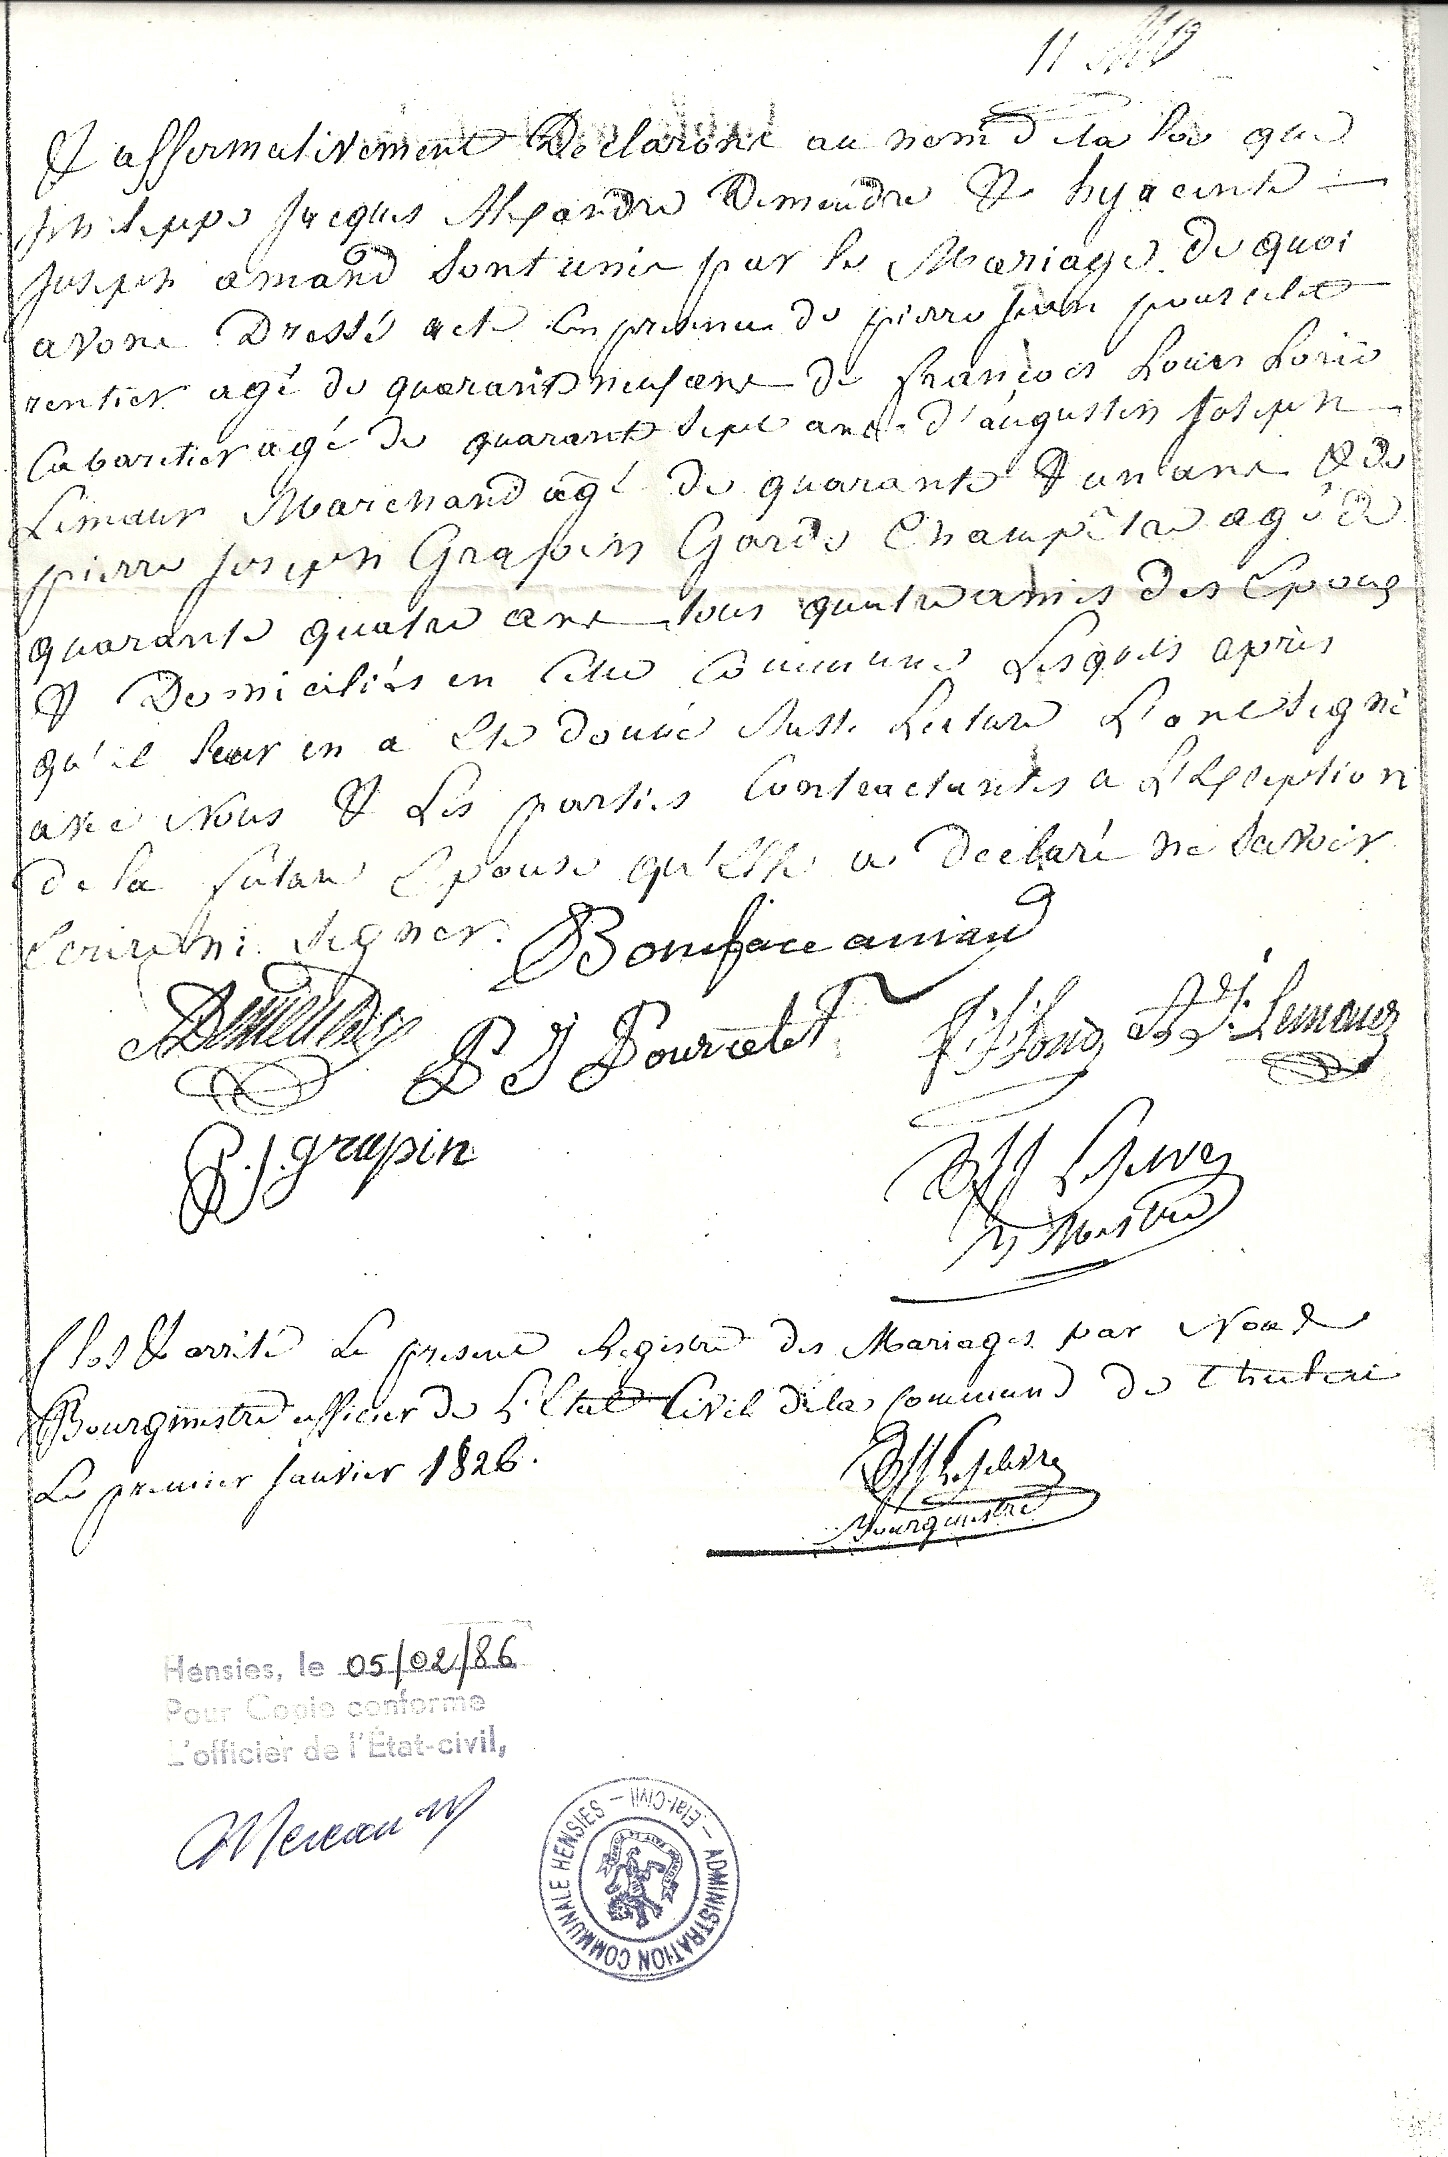 & affirmativement Déclarons au nom de la loi que
philippe jacques Alexandre Demeudre & hyacinte
Joseph amand Sont unis par le Mariage. de quoi
avons Dressé acte en presence de pierre jean pourcelet
rentier agé de quarante neuf ans de françois Louis Loriò
Cabaretier agé de quarante sept ans d'augustin Joseph
Lemaur Marchand agé de quarante & un ans & de
pierre joseph Grapin Garde Champêtre agé de
quarante quatre ans tous quatre amis des Epoux
& Domiciliés en cette commune Lesquels après
qu'il leur en a été donné Susdte Lecture L'ont signé
avec Nous & Les parties Contractantes a L'Exception
de la future Epouse qu'Elle a declaré ne Savoir
Ecrire ni signer. Boniface amand
Demeudre P J Pourcelet A. J. Lemaur
P. J. grapin Lefebvre
Clos & arrêté Le present Registre des Mariages par Nous
Bourgmestre officier de L'Etat Civil de la Commune de Thulin
Le premier janvier 1826.
Lefebvre
Bourgmestre
Hensies, le 05/02/86
Pour Copie conforme
L'officier de l'État-civil,
ADMINISTRATION COMMUNALE HENSIES – Etat-Civil –